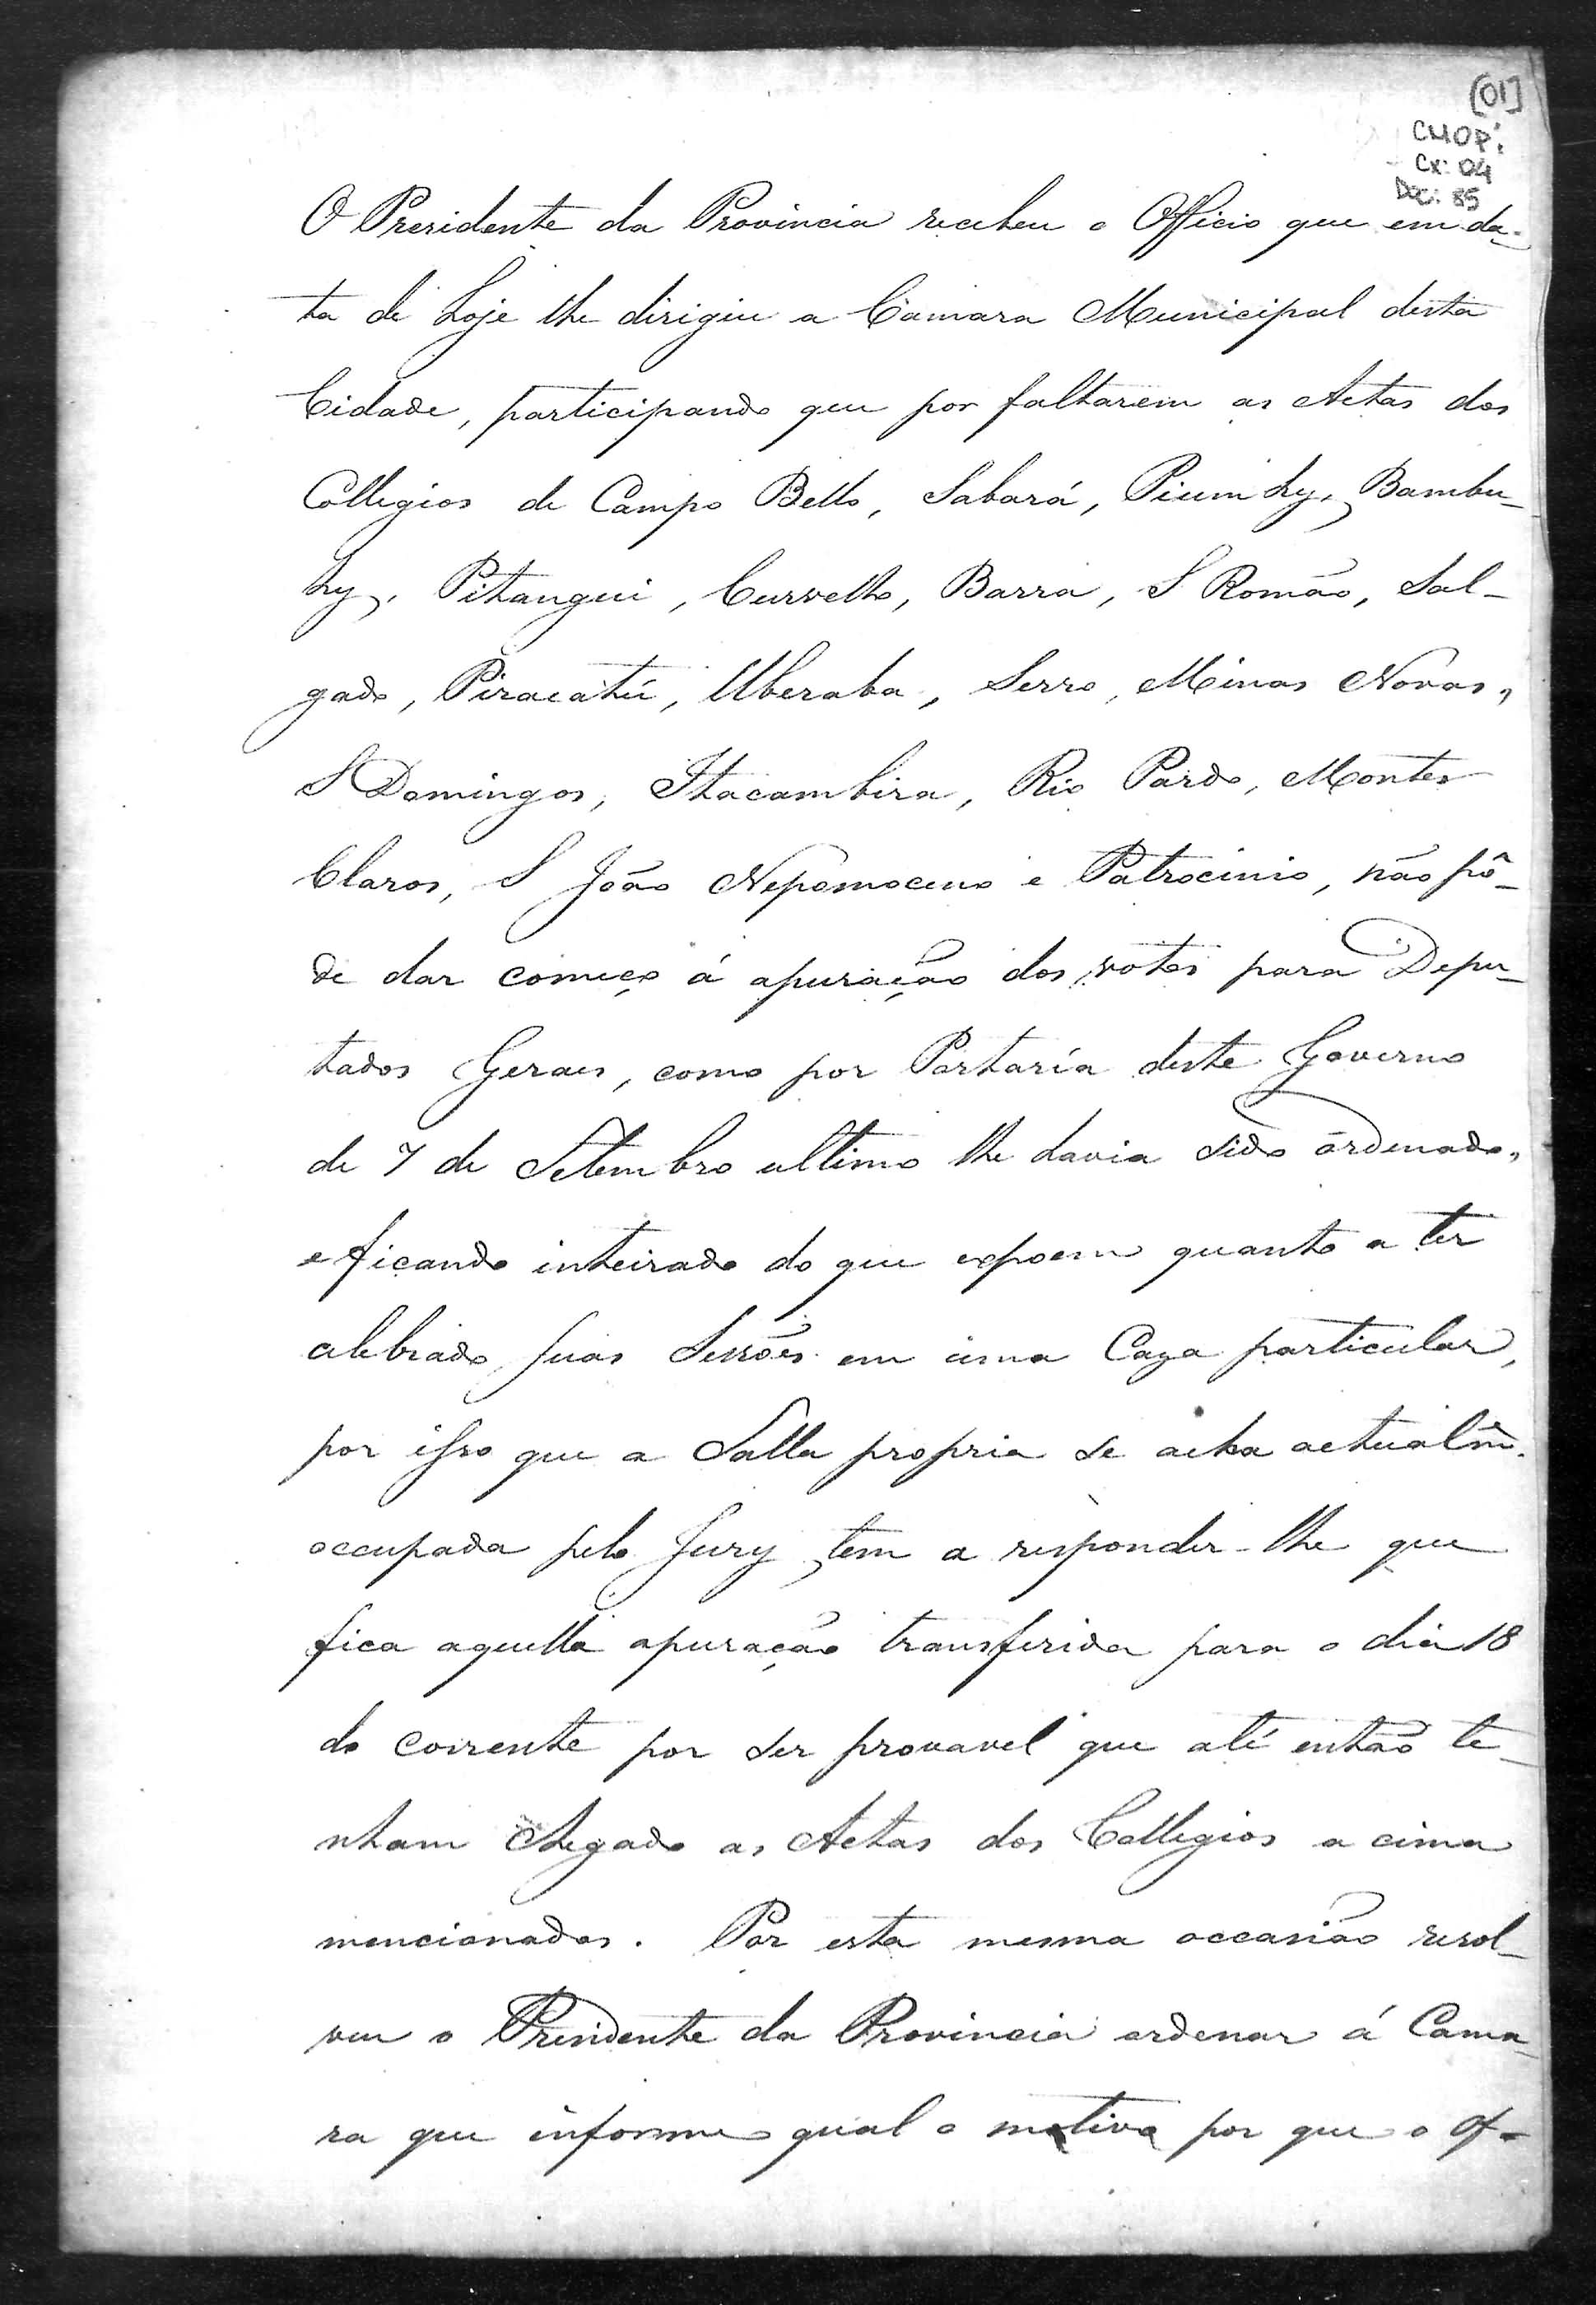 [01]
CMOP.
Cx: 04
Doc: 85
O Presidente da Provincia recebeu o Officio que em da-
ta de hoje lhe dirigiu a Camara Municipal desta
Cidade, participando que por faltarem as Actas dos
Collegios de Campo Bello, Sabará, Pium hy, Bambu-
hy, Pitangui, Curvello, Barra, S Romão, Sal-
gado, Piracatú, Uberaba, Serro, Minas Novas,
S Domingos, Itacambira, Rio Pardo, Montes
Claros, S João Nepomoceno e Patrocinio, não pô-
de dar começo á apuração dos votos para Depu-
tados Geraes, como por Portaría deste Governo
de 7 de Setembro ultimo lhe havia sido ordenado,
e ficando inteirado do que expoem quanto a ter
celebrado suas Sessões em uma Caza particular,
por isso que a Salla propria se acha actualme.
occupada pelo Jury, tem a responder-lhe que
fica aquella apuração transferida para o dia 18
do corrente por ser provavel que até então te-
nham chegado as Actas dos Collegios a cima
mencionados. Por esta mesma occasião resol-
veu o Presidente da Provincia ordenar á Cama-
ra que informe qual o motivo por que o of-